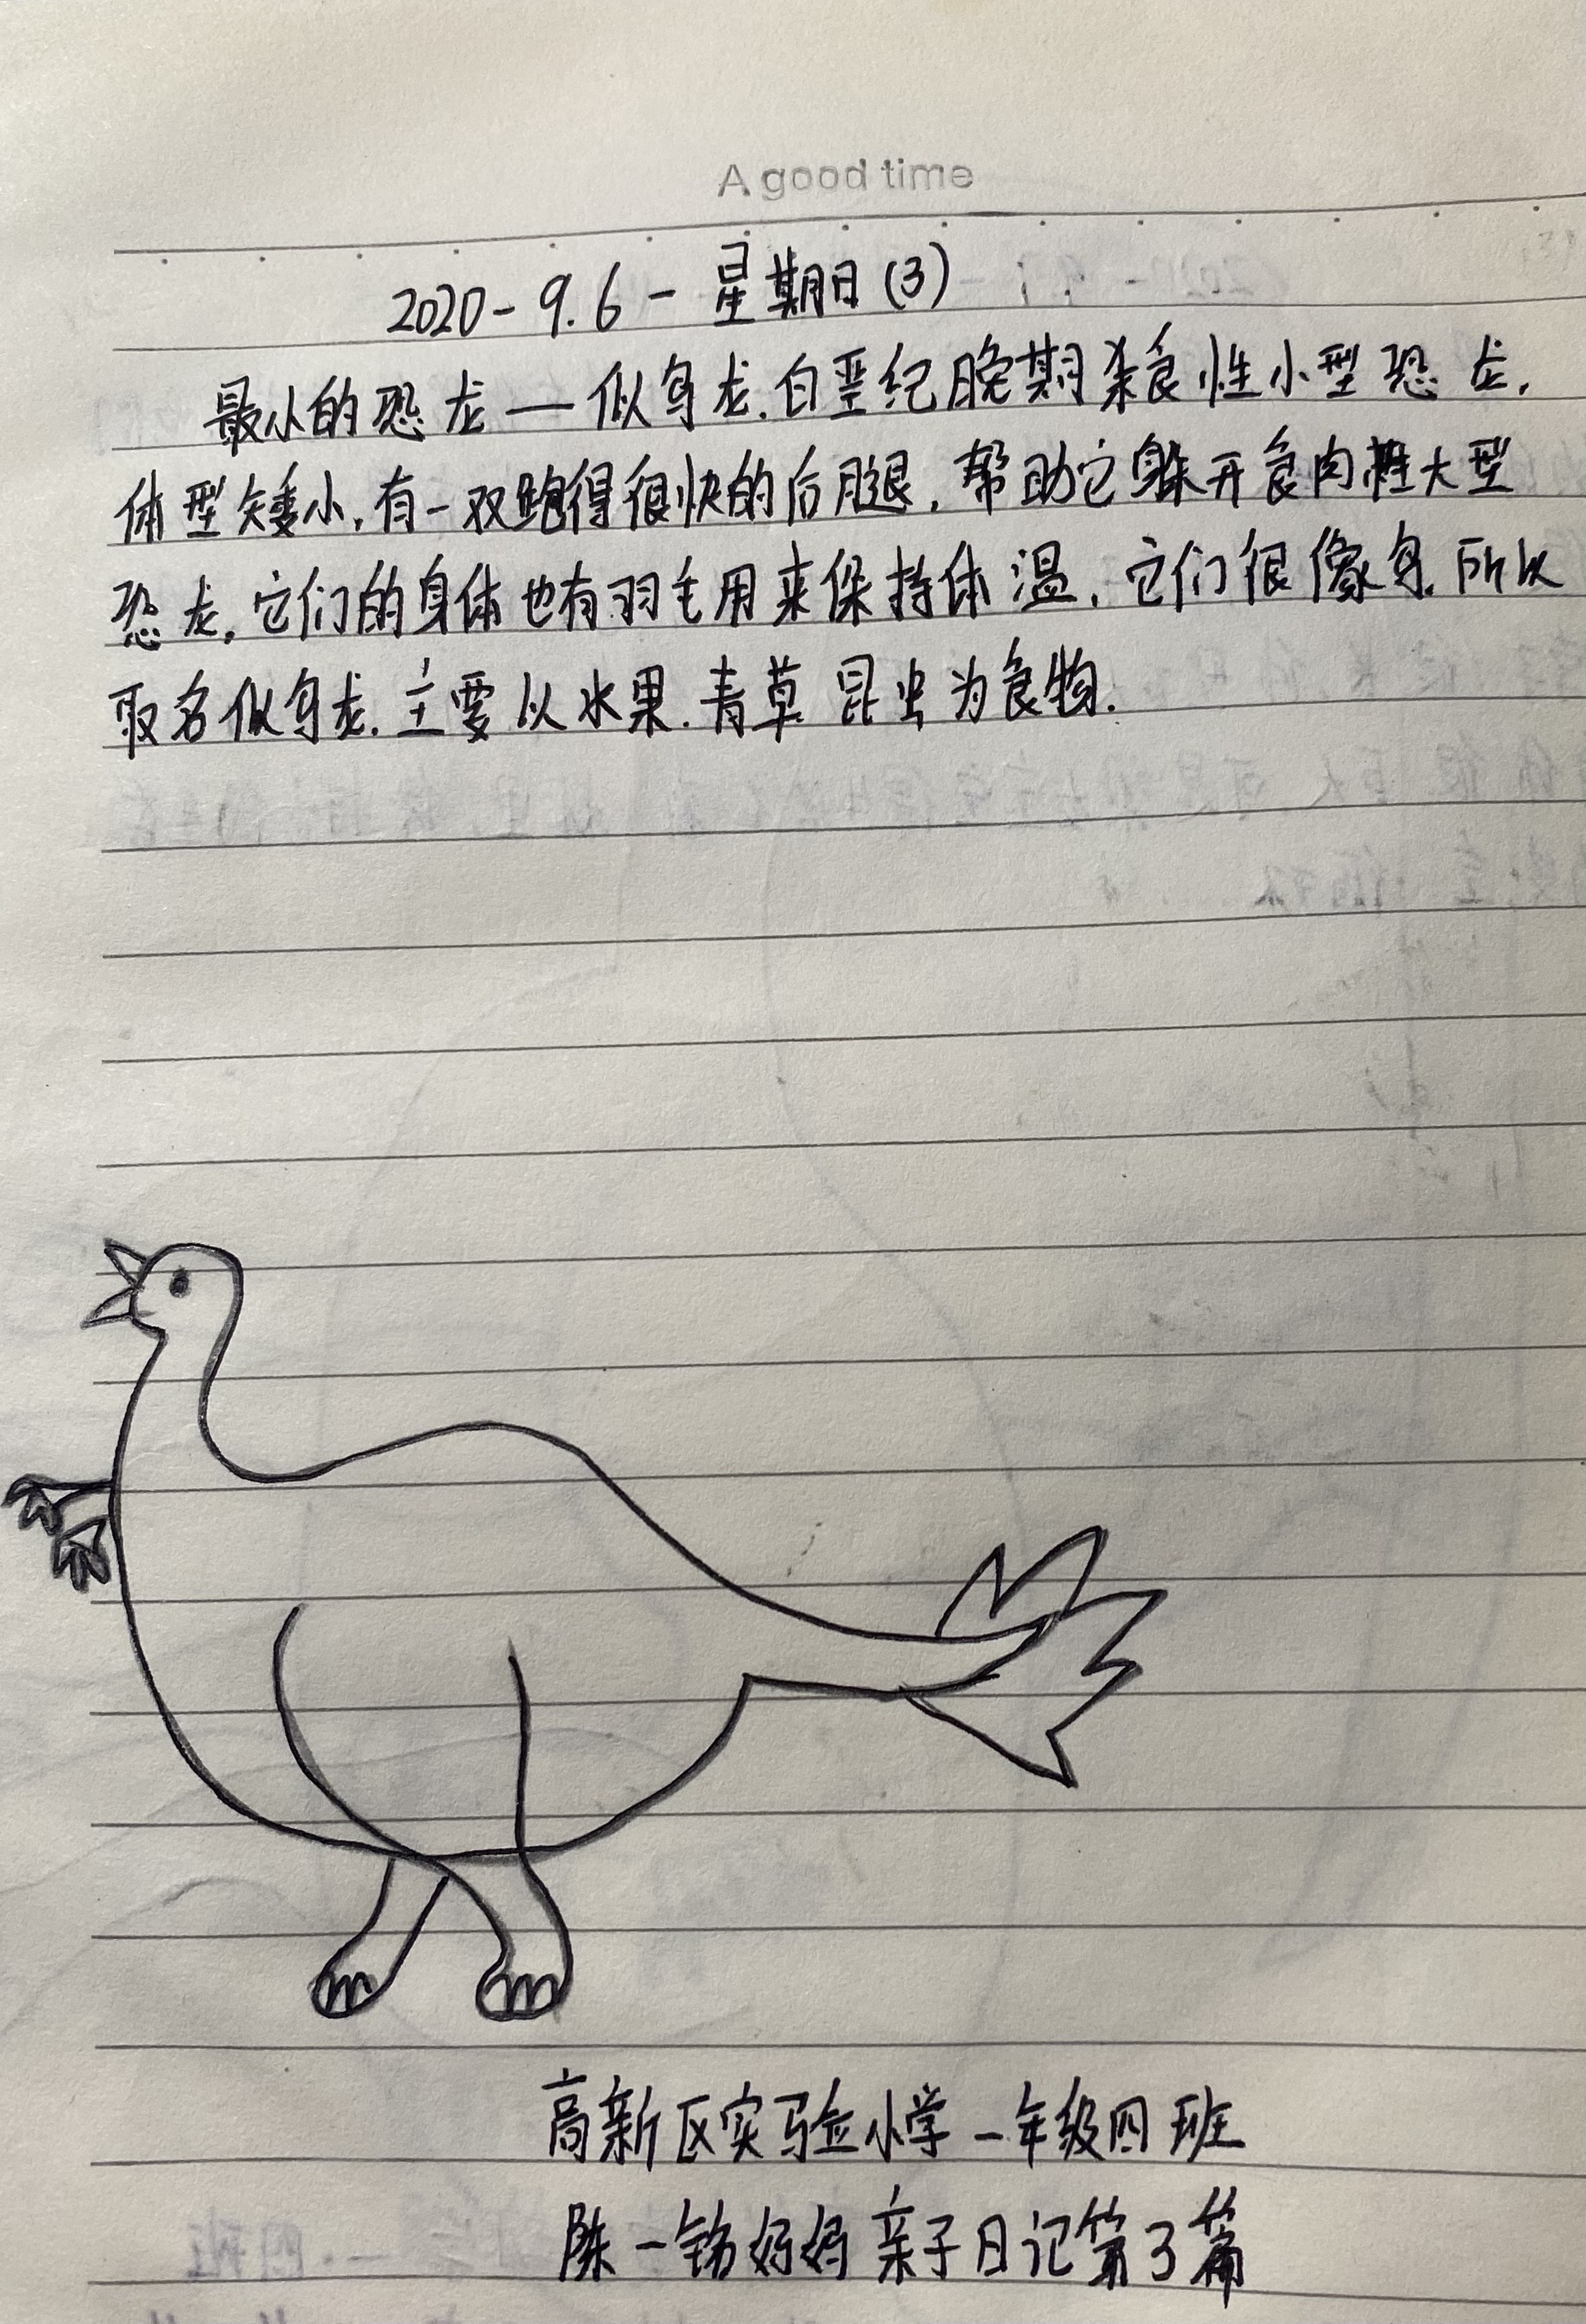 A good time
2020-9.6-星期日(3)
最小的恐龙—似鸟龙.白垩纪晚期杂食性小型恐龙,
体型矮小,有一双跑得很快的后腿,帮助它躲开食肉性大型
恐龙,它们的身体也有羽毛用来保持体温,它们很像鸟.所以
取名似鸟龙.主要以水果.青草 昆虫为食物.
高新区实验小学一年级四班
陈一妈妈亲子日记第3篇